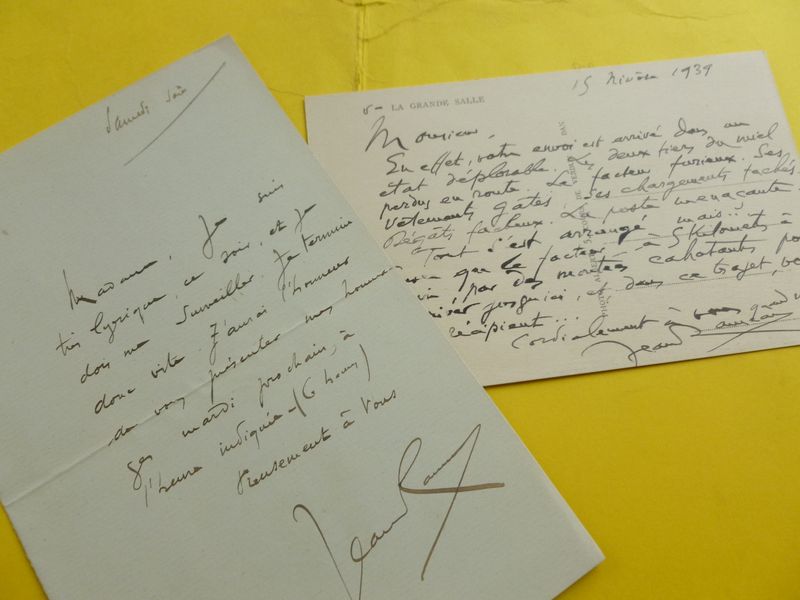 Samedi soir
Madame, Je suis
très lyrique, ce soir, et je
dois me surveiller. Je termine
donc vite. J'aurai l'honneur
de vous présenter mes homma
ges mardi prochain, à
l'heure indiquée - (6 heures)
à Vous
Jean
15 1939
LA GRANDE SALLE
Monsieur,
En effet, votre envoi est arrivé dans un
état déplorable. Les deux tiers du miel
perdus en route. Le facteur furieux. Ses
vêtements gâtés. Ses chargements tachés.
Dégâts facheux. La poste menaçante
Tout s'est arrangé mais...
que le facteur a 5 kilomèts à
par des montées cahotantes po
jusqu'ici, et dans ce trajet, vo
récipient...
Cordialement à vous
Jean